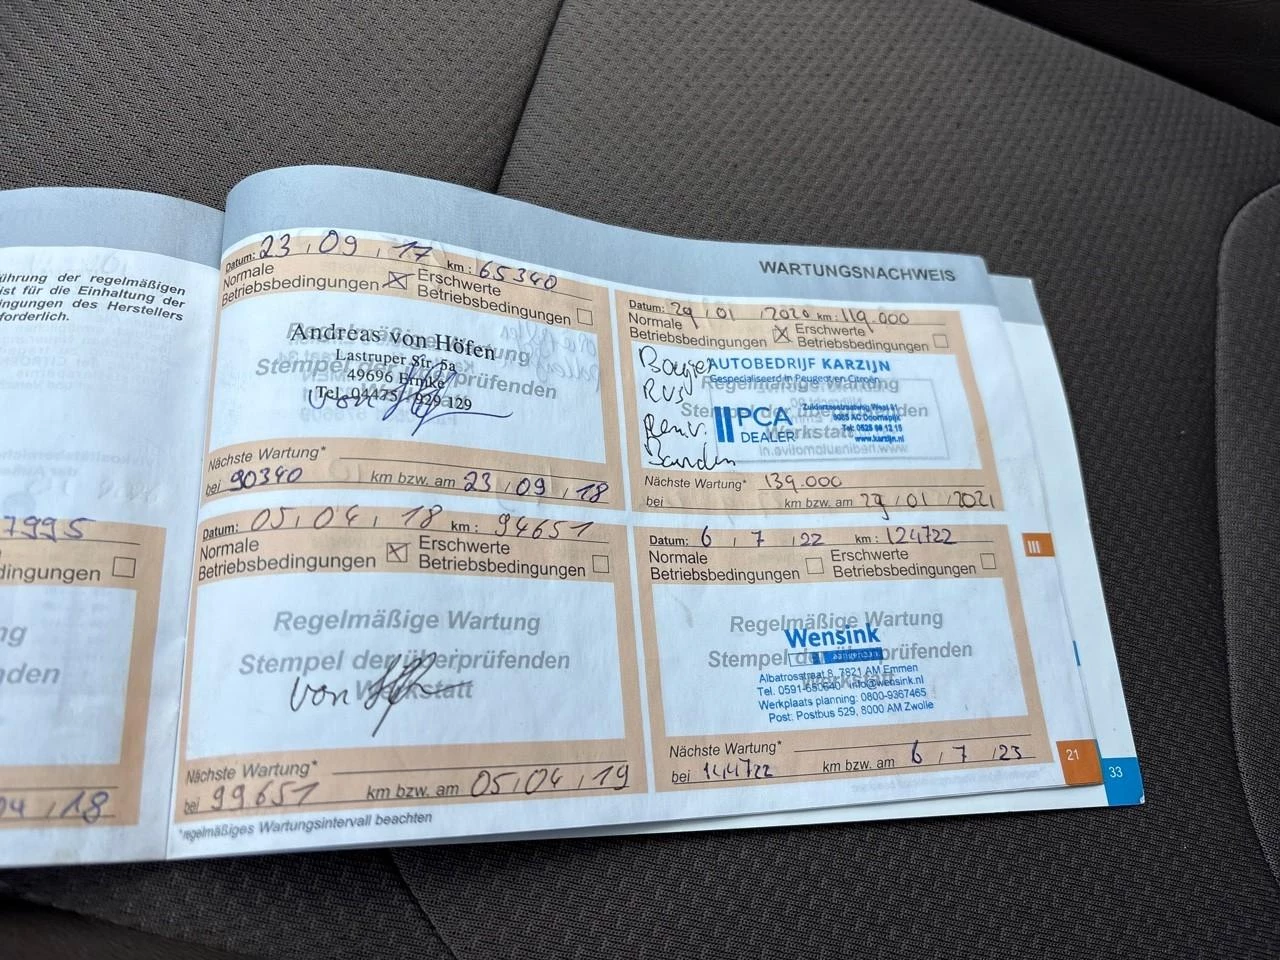 ührung der regelmäßigen
ist für die Einhaltung der
ingungen des Herstellers
forderlich.
7995
dingungen
ng
nden
04 / 18
WARTUNGSNACHWEIS
Datum: 23 / 09 / 17 km: 65340
Normale Betriebsbedingungen Erschwerte Betriebsbedingungen
Regelmäßige Wartung
Andreas von Höfen
Lastruper Str. 5a
Stempel der überprüfenden
49696 Ermke
Tel. 04475 / 929 129
Nächste Wartung*
bei 90340 km bzw. am 23 / 09 / 18
Datum: 05 / 04 / 18 km: 94651
Normale Betriebsbedingungen Erschwerte Betriebsbedingungen
Regelmäßige Wartung
Stempel der überprüfenden
Werkstatt
von
Nächste Wartung*
bei 99651 km bzw. am 05 / 04 / 19
*regelmäßiges Wartungsintervall beachten
Datum: 29 / 01 / 2020 km: 119.000
Normale Betriebsbedingungen Erschwerte Betriebsbedingungen
Bougie
AUTOBEDRIJF KARZIJN
Gespecialiseerd in Peugeot en Citroën
Regelmäßige Wartung
Stempel der überprüfenden
PCA
DEALER
Werkstatt
www.karzijn.nl
Banden
Nächste Wartung* 139.000
bei km bzw. am 29 / 01 / 2021
Datum: 6 / 7 / 22 km: 124722
Normale Betriebsbedingungen Erschwerte Betriebsbedingungen
Regelmäßige Wartung
Wensink
Stempel der überprüfenden
Werkstatt
Albatrosstraat 8, 7821 AM Emmen
Tel. 0591-650640 info@wensink.nl
Werkplaats planning: 0800-9367465
Post: Postbus 529, 8000 AM Zwolle
Nächste Wartung*
bei 144722 km bzw. am 6 / 7 / 23
III
21
33